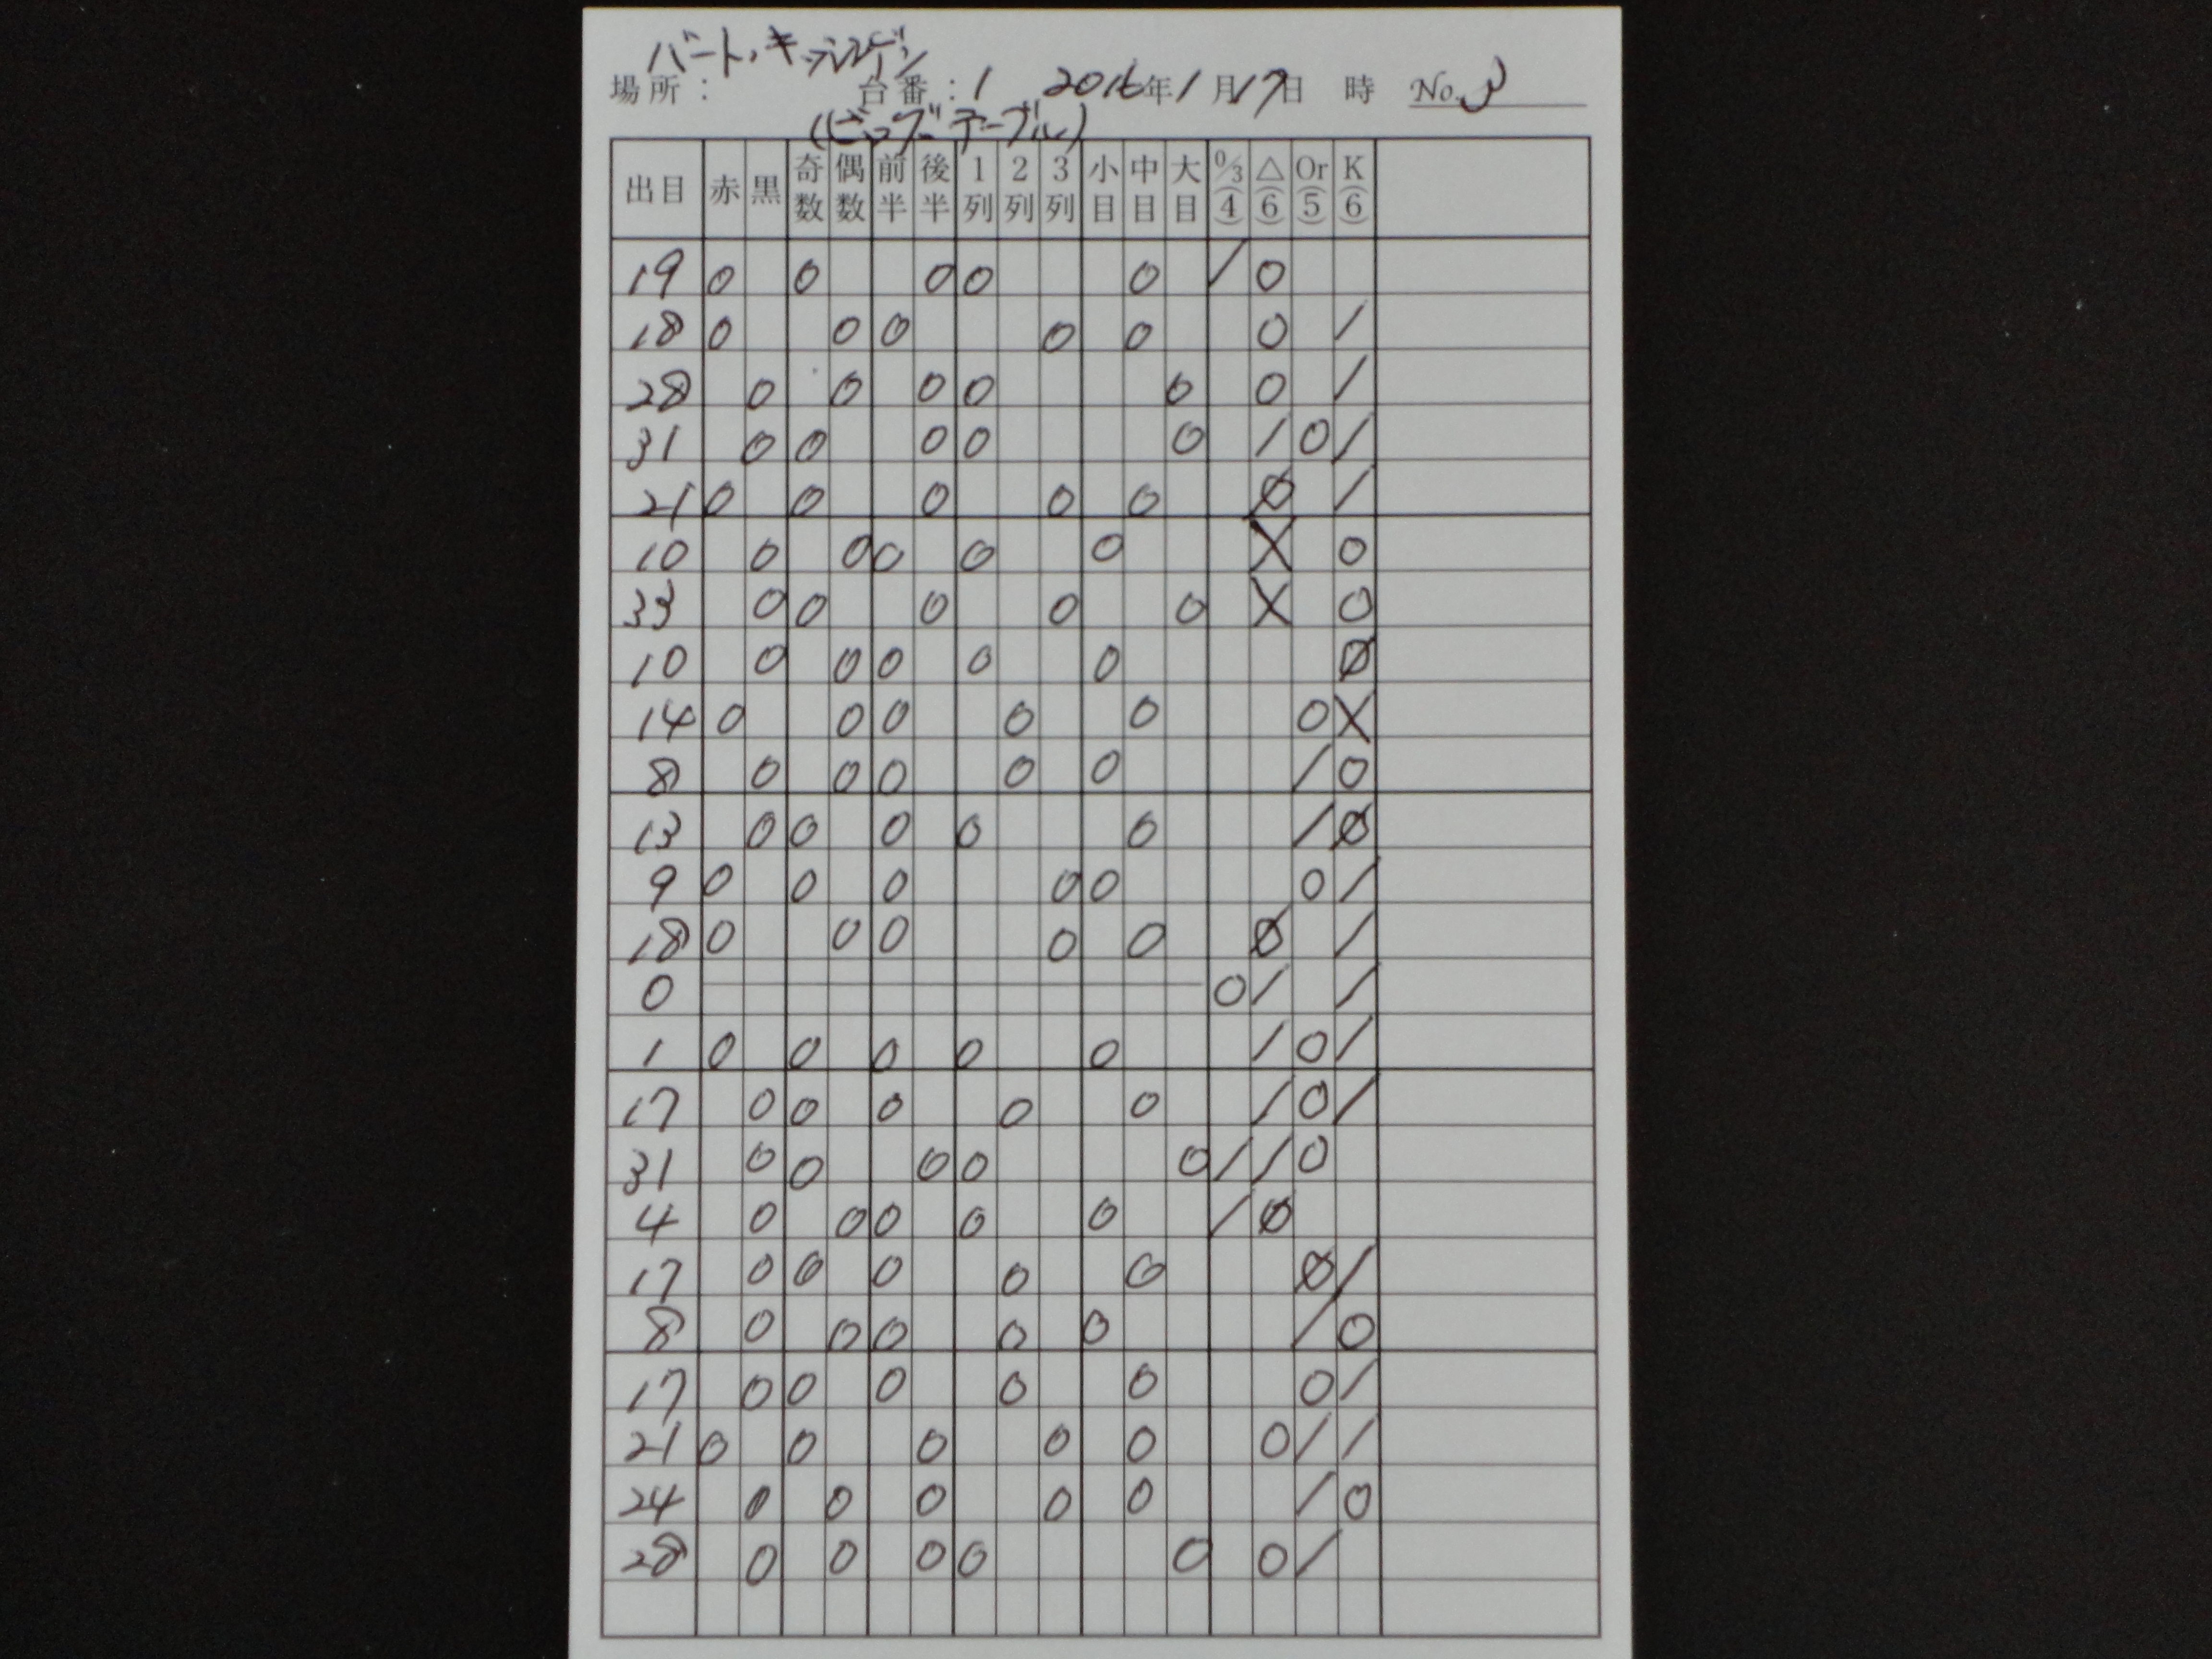 バート、キッシンゲン
場所: 台番:1 2016年1月17日 時 No.3
(ビッグテーブル)
出目 赤 黒 奇数 偶数 前半 後半 1列 2列 3列 小目 中目 大目 0/3(4) △(6) Or(5) K(6)
19 0 0 0 0 0 / 0
18 0 0 0 0 0 0 /
28 0 0 0 0 0 0 /
31 0 0 0 0 0 / 0 /
21 0 0 0 0 0 Ø /
10 0 0 0 0 0 X 0
33 0 0 0 0 0 X 0
10 0 0 0 0 0 Ø
14 0 0 0 0 0 0 X
8 0 0 0 0 0 / 0
13 0 0 0 0 0 / Ø
9 0 0 0 0 0 0 /
18 0 0 0 0 0 Ø /
0 0 / /
1 0 0 0 0 0 / 0 /
17 0 0 0 0 0 / 0 /
31 0 0 0 0 0 / / 0
4 0 0 0 0 0 / Ø
17 0 0 0 0 0 Ø /
8 0 0 0 0 0 / 0
17 0 0 0 0 0 0 /
21 0 0 0 0 0 0 / /
24 0 0 0 0 0 / 0
28 0 0 0 0 0 0 /